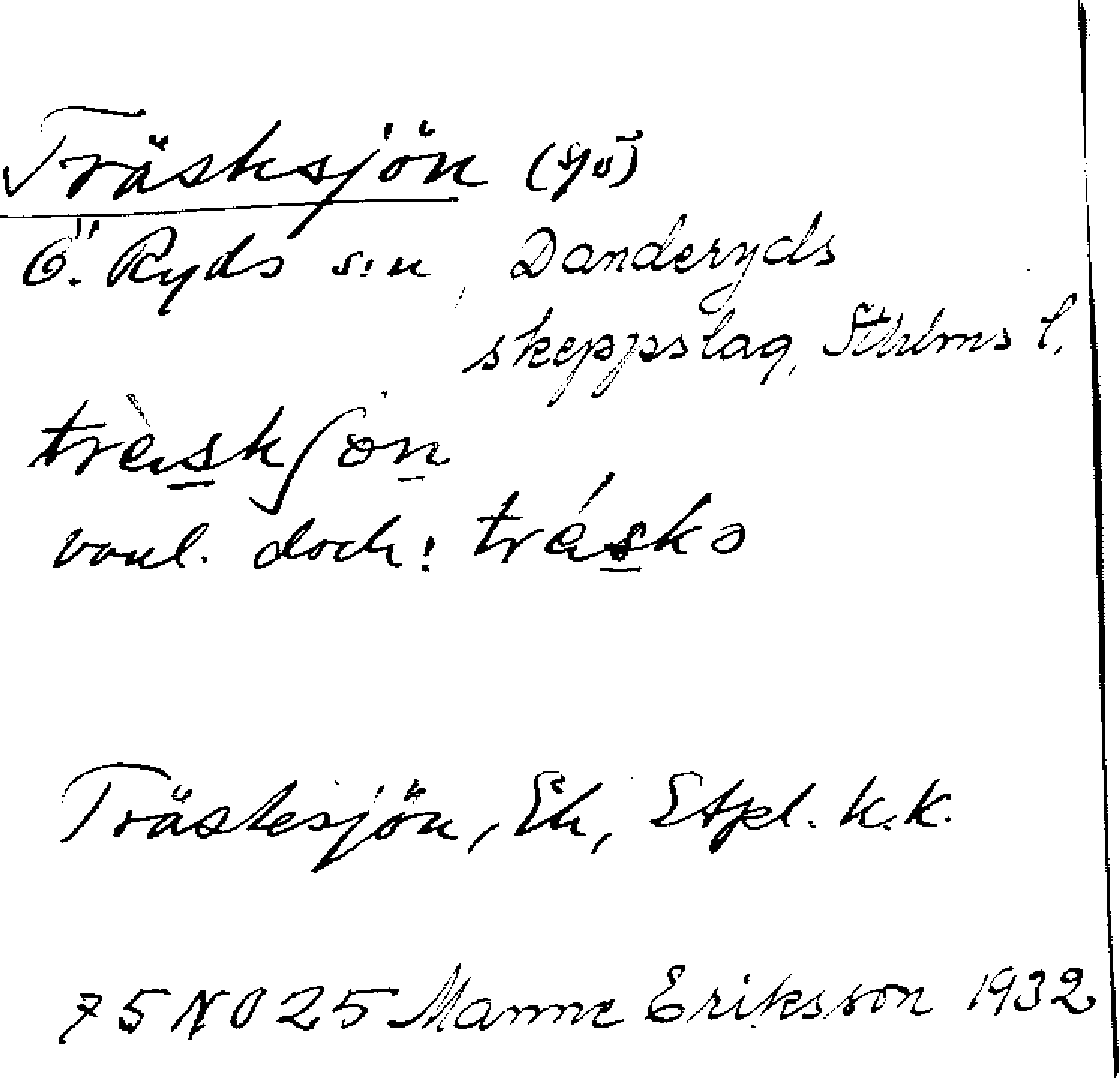 Träsksjön (sjö)
Ö. Ryds s:n, Danderyds
skeppslag, Sthlms l.
trὲskʃön
vanl. dock: trέskə
Träsksjön, Ek, Stpl. k.k.
75 NO 25 Manne Eriksson 1932